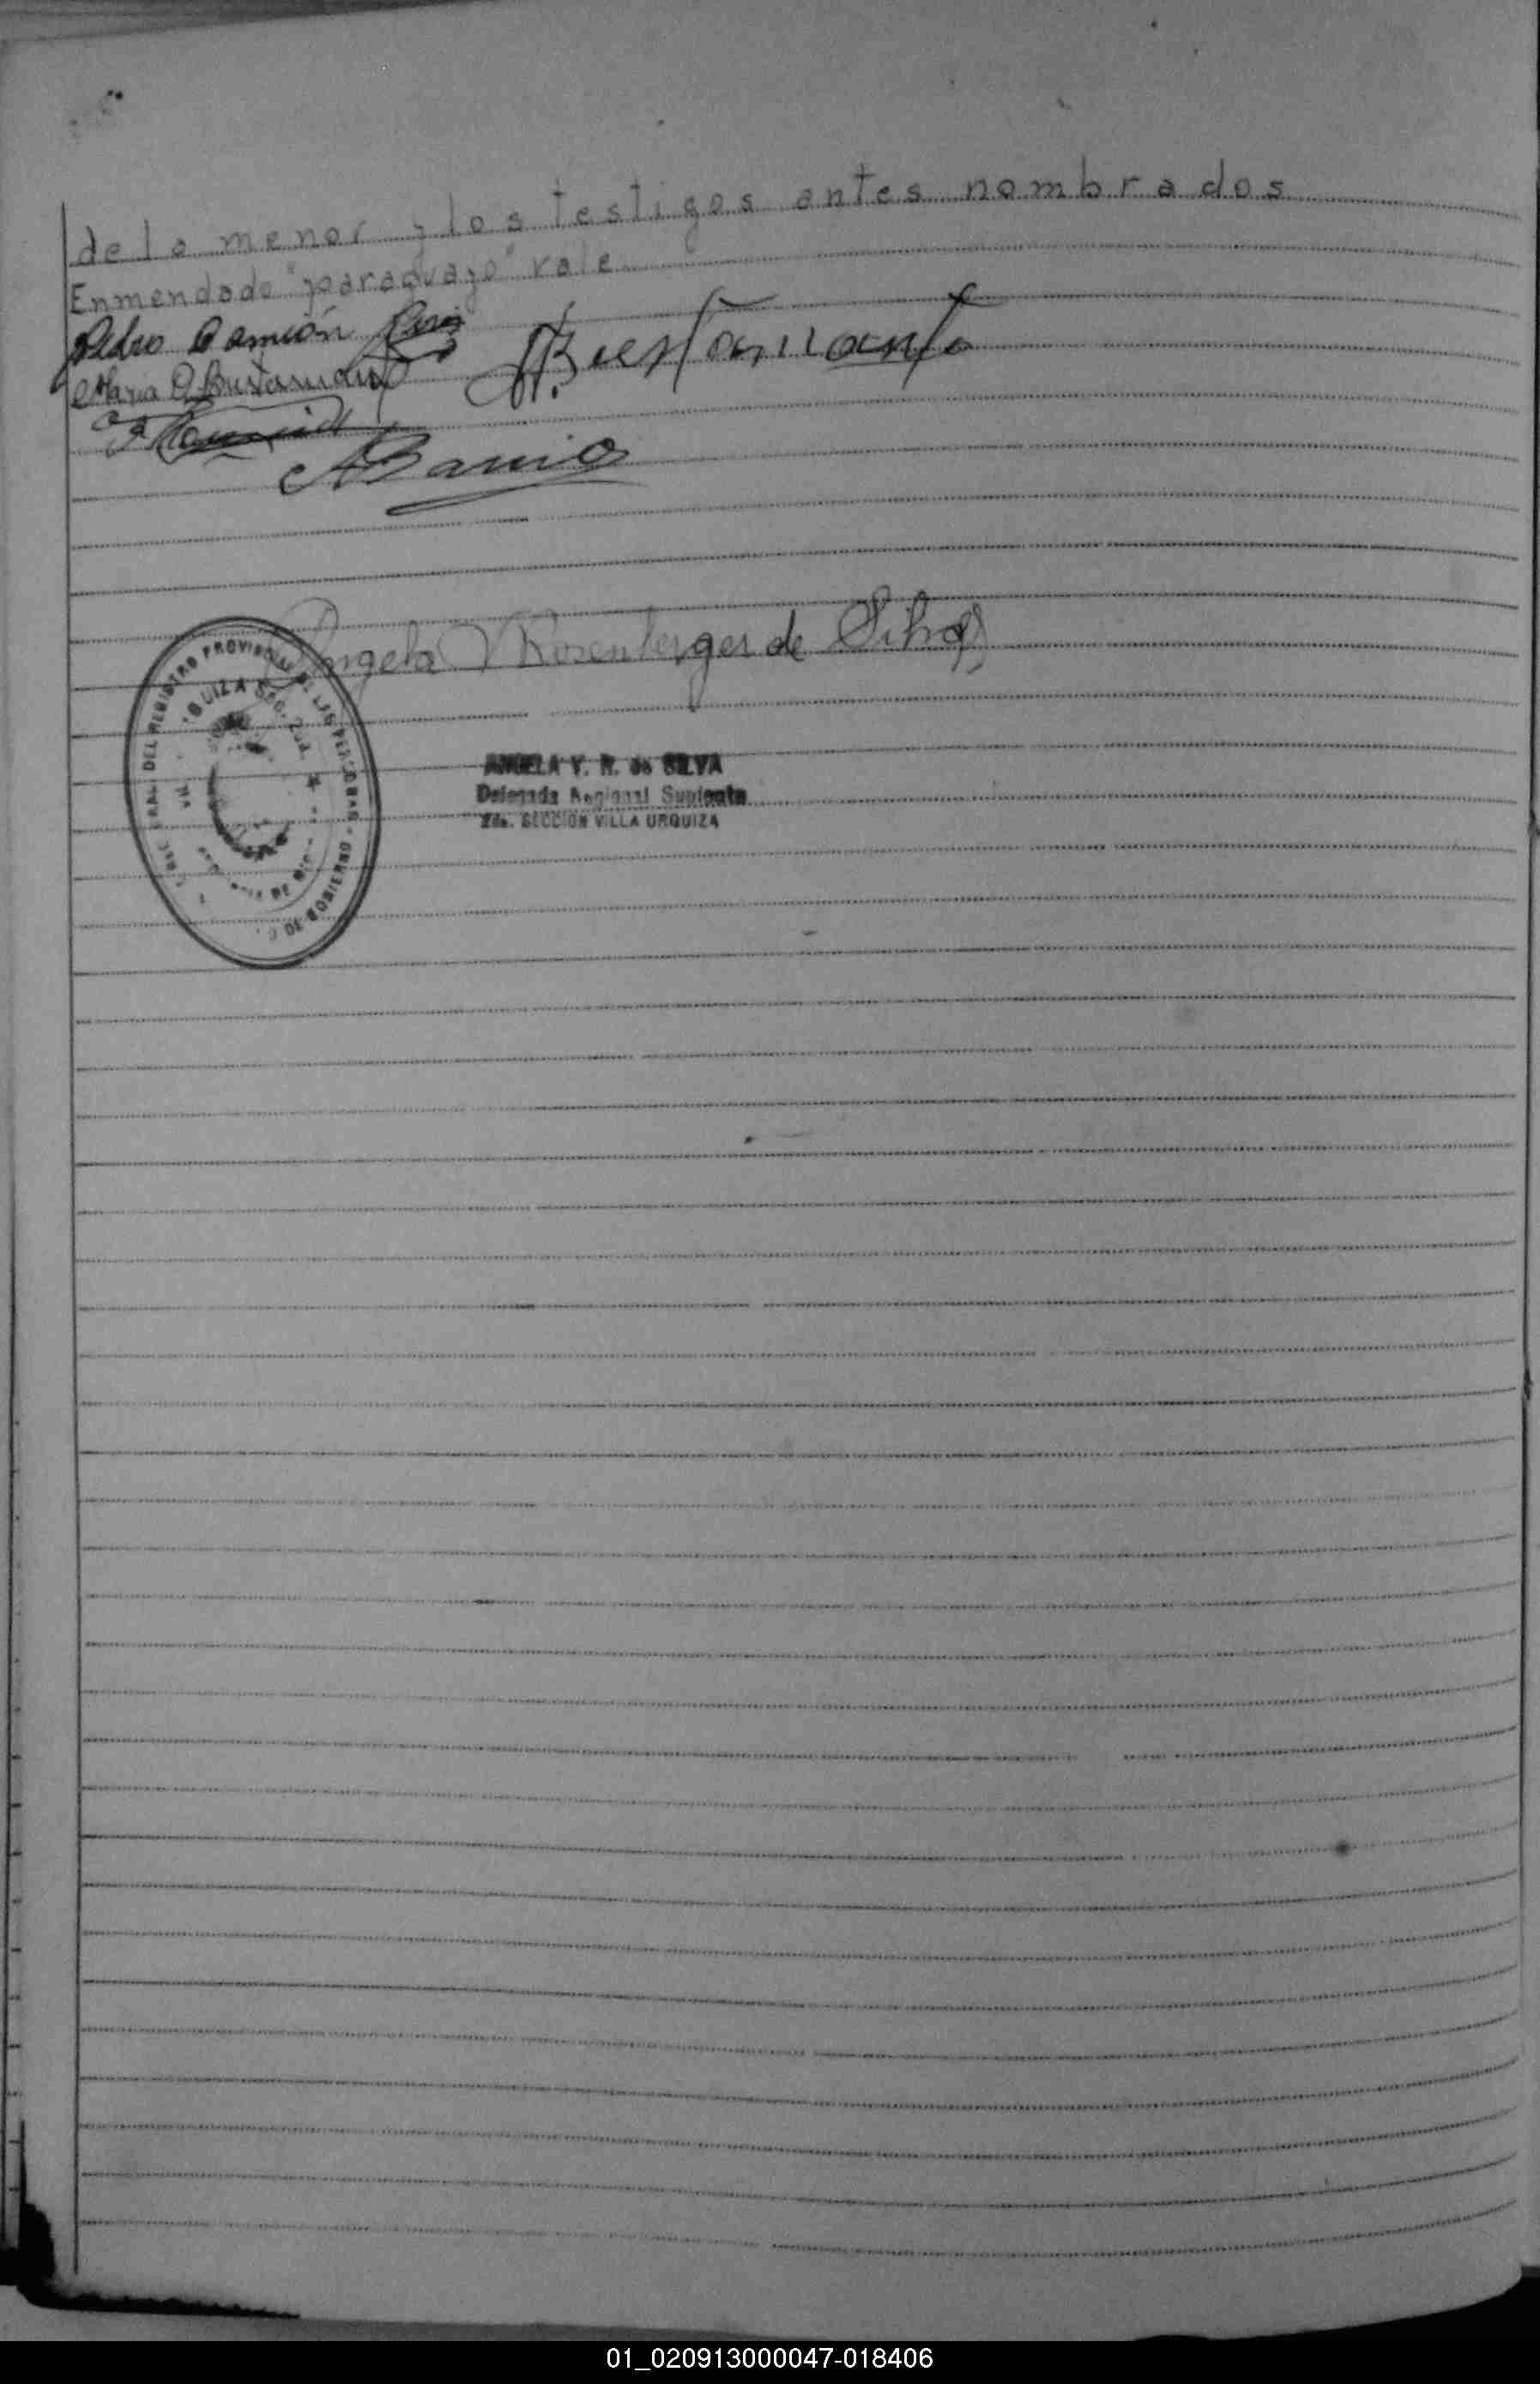 de la menor y los testigos antes nombrados
Enmendado "paraguayo" vale
Pedro Damión
Bustamante
Maria Bustamante
A Barrio
Angela V Rosenberger de Silva
DEL REGISTRO PROVINCIAL DE LAS PERSONAS
DE GOBIERNO
ANGELA V. R. de SILVA
Delegada Regional Suplente
2da. SECCION VILLA URQUIZA
01_020913000047-018406